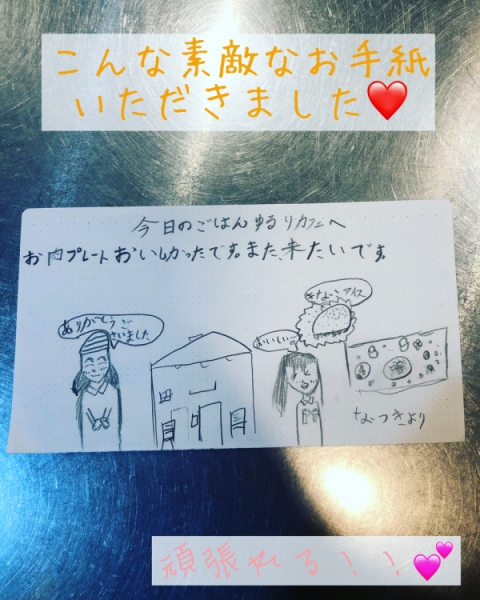 こんな素敵なお手紙
いただきました❤️
今日のごはん ゆるりカフェへ
お肉プレートおいしかったです。また、来たいです。
ありがとうご
ざいました
おいしい
きなこアイス
なつきより
頑張れる！！💕